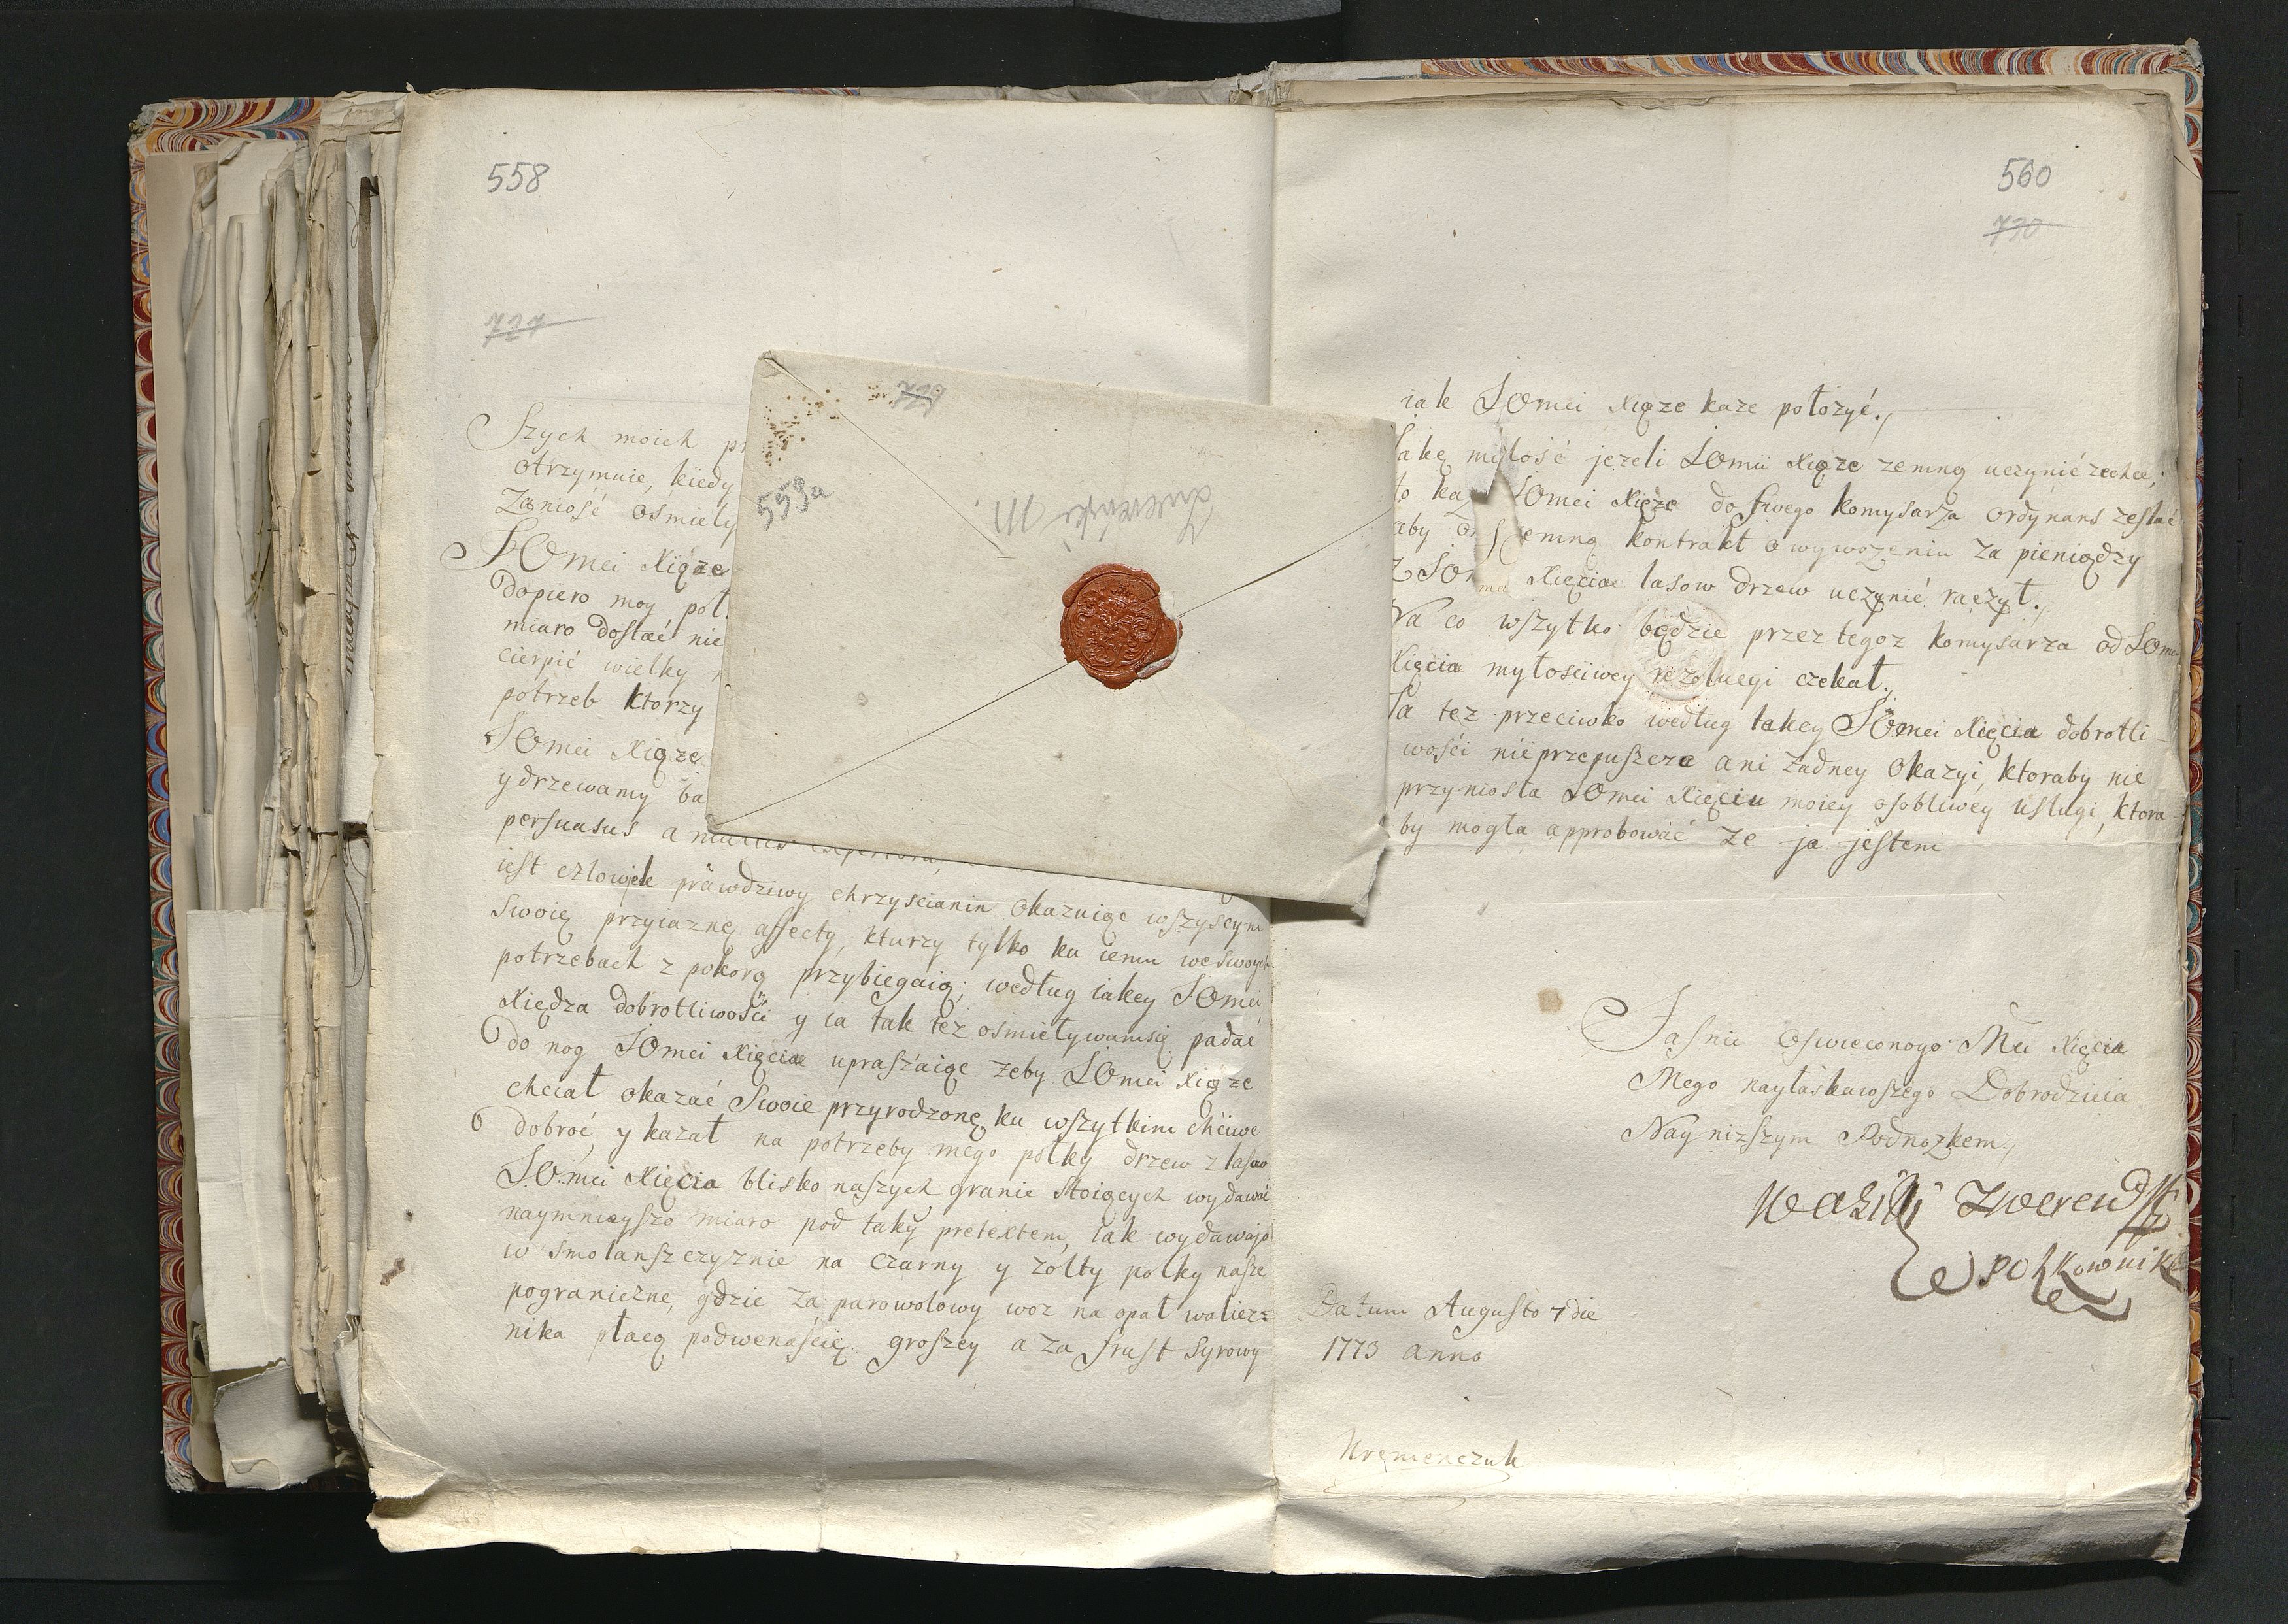 558
727
Szych moich
otrzymuie, kiedy
Zaniość osmiely
JOmci Xiąze
dopiero moy
miaro dostać nie
cierpić wielky
potrzeb ktorzy
JOmci Xiąze
y drzewamy ba
persuasus a
iest człowiek prawdziwy chrzyscianin okazuiąc wszyscym
swoię przyiaznę affecty, kturzy tylko ku iemu we swoych
potrzebach z pokorą przybiegaią; według iakey JOmci
Xiędza dobrotliwości y ia tak tez osmieływamsię padać
do nog JOmci Xięcia upraszaiąc zeby JOmci Xiąze
chciał okazać Swoie przyrodzonę ku wszytkim chciwe
dobroć, y kazał na potrzeby mego polky drzew z lasow
JOmci Xięcia blisko naszych granic stoiących wydawać
naymnieyszo miaro pod taky pretextem, iak wydawajo
w Smolanszczyznie na Czarny y zolty polky nasze
pograniczne, gdzie za parowolowy woz na opał walicz=
nika płacą podwenaście groszey a za frust Syrowy
729
559a
560
730
iak JOmci Xiąze kaze położyć.,
Takę myłość jezeli JOmci Xiąze zemną uczynić zechce,
to JOmci Xiąze do swego komysarza ordynans zesłać
aby zemną kontrakt o wywozeniu za pieniądzy
Z Xięcia lasow drzew uczynić raczył.,
Na co wszytko będzie przez tegoz komysarza od JOmci
Xięcia myłosciwey rezolucyi czekał.,
Ja tez przeciwko według takey JOmci Xięcia dobrotli-
wości nieprzepuszcza ani żadney okazyi, ktoraby nie
przyniosła JOmci Xięciu moiey osobliwey usługi, ktora-
by mogła approbować ze ja jestem
Jasnie Oswieconogo Mci Xięcia
Mego nayłaskawszego Dobrodzieia
Nayniższym Podnozkem.,
Datum Augusto 7 die
1773 anno
Kremienczuk